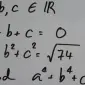 b, c ∈ ℝ
b + c = 0
b² + c² = √74
d a⁴ + b⁴ +